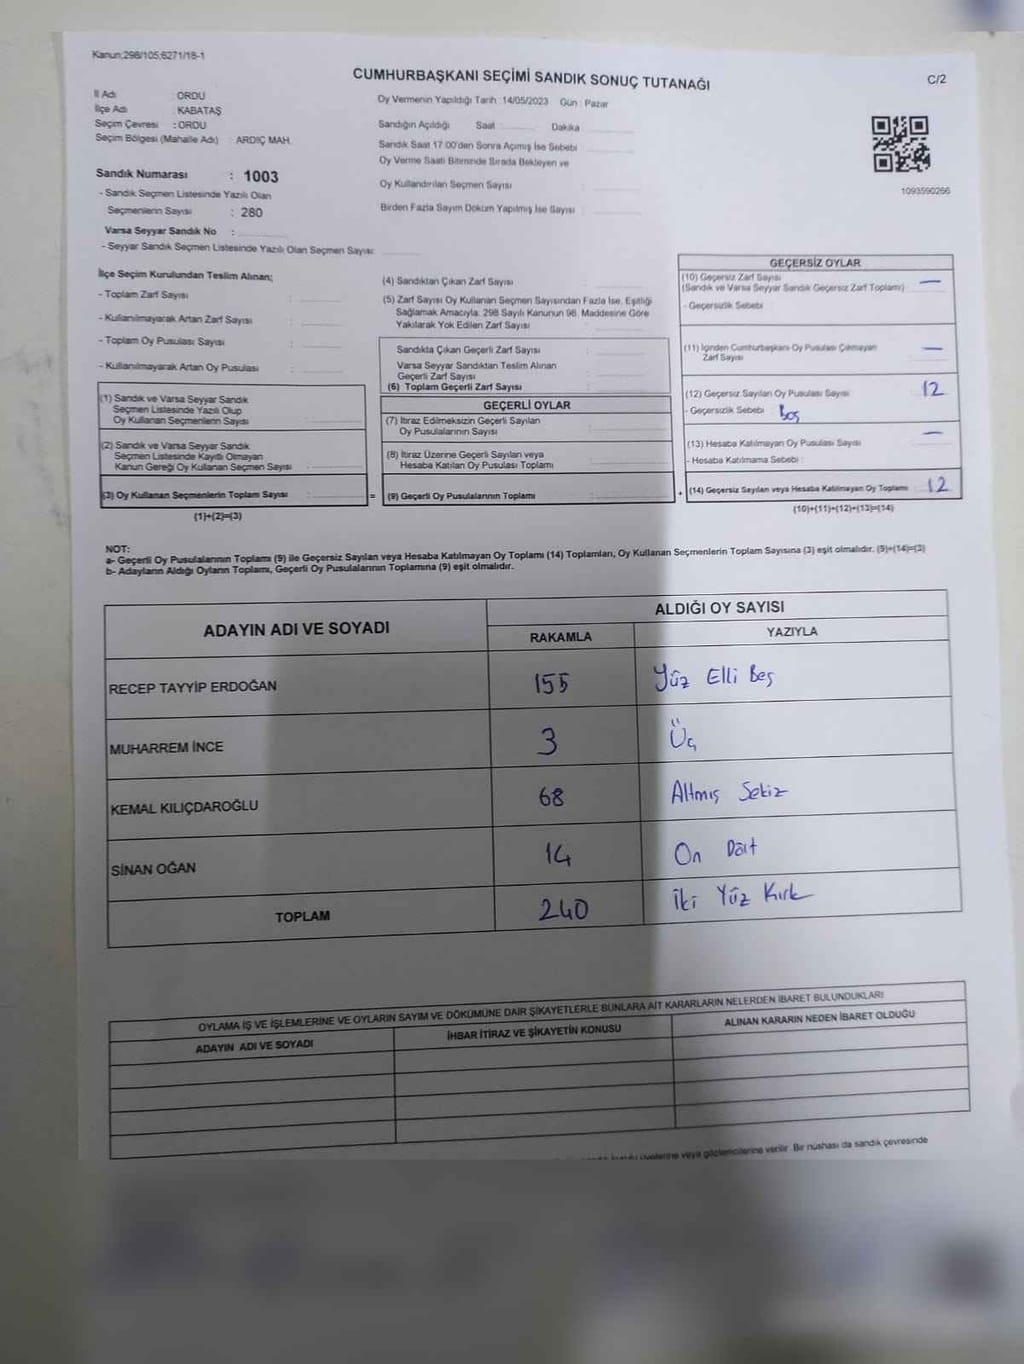 Kanun;298/105;6271/18-1
CUMHURBAŞKANI SEÇİMİ SANDIK SONUÇ TUTANAĞI
C/2
İl Adı : ORDU
İlçe Adı : KABATAŞ
Seçim Çevresi : ORDU
Seçim Bölgesi (Mahalle Adı) : ARDIÇ MAH.
Sandık Numarası : 1003
- Sandık Seçmen Listesinde Yazılı Olan
Seçmenlerin Sayısı : 280
Varsa Seyyar Sandık No :
- Seyyar Sandık Seçmen Listesinde Yazılı Olan Seçmen Sayısı:
Oy Vermenin Yapıldığı Tarih : 14/05/2023 Gün : Pazar
Sandığın Açıldığı Saat : Dakika
Sandık Saat 17:00'den Sonra Açımış İse Sebebi
Oy Verme Saati Bitiminde Sırada Bekleyen ve
Oy Kullandırılan Seçmen Sayısı :
Birden Fazla Sayım Döküm Yapılmış İse Sayısı :
1093590266
İlçe Seçim Kurulundan Teslim Alınan;
- Toplam Zarf Sayısı :
- Kullanılmayarak Artan Zarf Sayısı :
- Toplam Oy Pusulası Sayısı :
- Kullanılmayarak Artan Oy Pusulası :
(1) Sandık ve Varsa Seyyar Sandık
Seçmen Listesinde Yazılı Olup
Oy Kullanan Seçmenlerin Sayısı :
(2) Sandık ve Varsa Seyyar Sandık
Seçmen Listesinde Kayıtlı Olmayan
Kanun Gereği Oy Kullanan Seçmen Sayısı :
(3) Oy Kullanan Seçmenlerin Toplam Sayısı :
(1)+(2)=(3)
(4) Sandıktan Çıkan Zarf Sayısı :
(5) Zarf Sayısı Oy Kullanan Seçmen Sayısından Fazla İse, Eşitliği
Sağlamak Amacıyla, 298 Sayılı Kanunun 98. Maddesine Göre
Yakılarak Yok Edilen Zarf Sayısı :
Sandıkta Çıkan Geçerli Zarf Sayısı :
Varsa Seyyar Sandıktan Teslim Alınan
Geçerli Zarf Sayısı :
(6) Toplam Geçerli Zarf Sayısı :
GEÇERLİ OYLAR
(7) İtiraz Edilmeksizin Geçerli Sayılan
Oy Pusulalarının Sayısı :
(8) İtiraz Üzerine Geçerli Sayılan veya
Hesaba Katılan Oy Pusulası Toplamı :
= (9) Geçerli Oy Pusulalarının Toplamı : +
GEÇERSİZ OYLAR
(10) Geçersiz Zarf Sayısı —
(Sandık ve Varsa Seyyar Sandık Geçersiz Zarf Toplamı) :
- Geçersizlik Sebebi :
(11) İçinden Cumhurbaşkanı Oy Pusulası Çıkmayan —
Zarf Sayısı
(12) Geçersiz Sayılan Oy Pusulası Sayısı : 12
- Geçersizlik Sebebi : Boş
(13) Hesaba Katılmayan Oy Pusulası Sayısı : —
- Hesaba Katılmama Sebebi :
(14) Geçersiz Sayılan veya Hesaba Katılmayan Oy Toplamı : 12
(10)+(11)+(12)+(13)=(14)
NOT:
a- Geçerli Oy Pusulalarının Toplamı (9) ile Geçersiz Sayılan veya Hesaba Katılmayan Oy Toplamı (14) Toplamları, Oy Kullanan Seçmenlerin Toplam Sayısına (3) eşit olmalıdır. (9)+(14)=(3)
b- Adayların Aldığı Oyların Toplamı, Geçerli Oy Pusulalarının Toplamına (9) eşit olmalıdır.
ADAYIN ADI VE SOYADI
ALDIĞI OY SAYISI
RAKAMLA YAZIYLA
RECEP TAYYİP ERDOĞAN 155 Yüz Elli Beş
MUHARREM İNCE 3 Üç
KEMAL KILIÇDAROĞLU 68 Altmış Sekiz
SİNAN OĞAN 14 On Dört
TOPLAM 240 İki Yüz Kırk
OYLAMA İŞ VE İŞLEMLERİNE VE OYLARIN SAYIM VE DÖKÜMÜNE DAİR ŞİKAYETLERLE BUNLARA AİT KARARLARIN NELERDEN İBARET BULUNDUKLARI
ADAYIN ADI VE SOYADI İHBAR İTİRAZ VE ŞİKAYETİN KONUSU ALINAN KARARIN NEDEN İBARET OLDUĞU
üyelerine veya gözlemcilerine verilir. Bir nüshası da sandık çevresinde